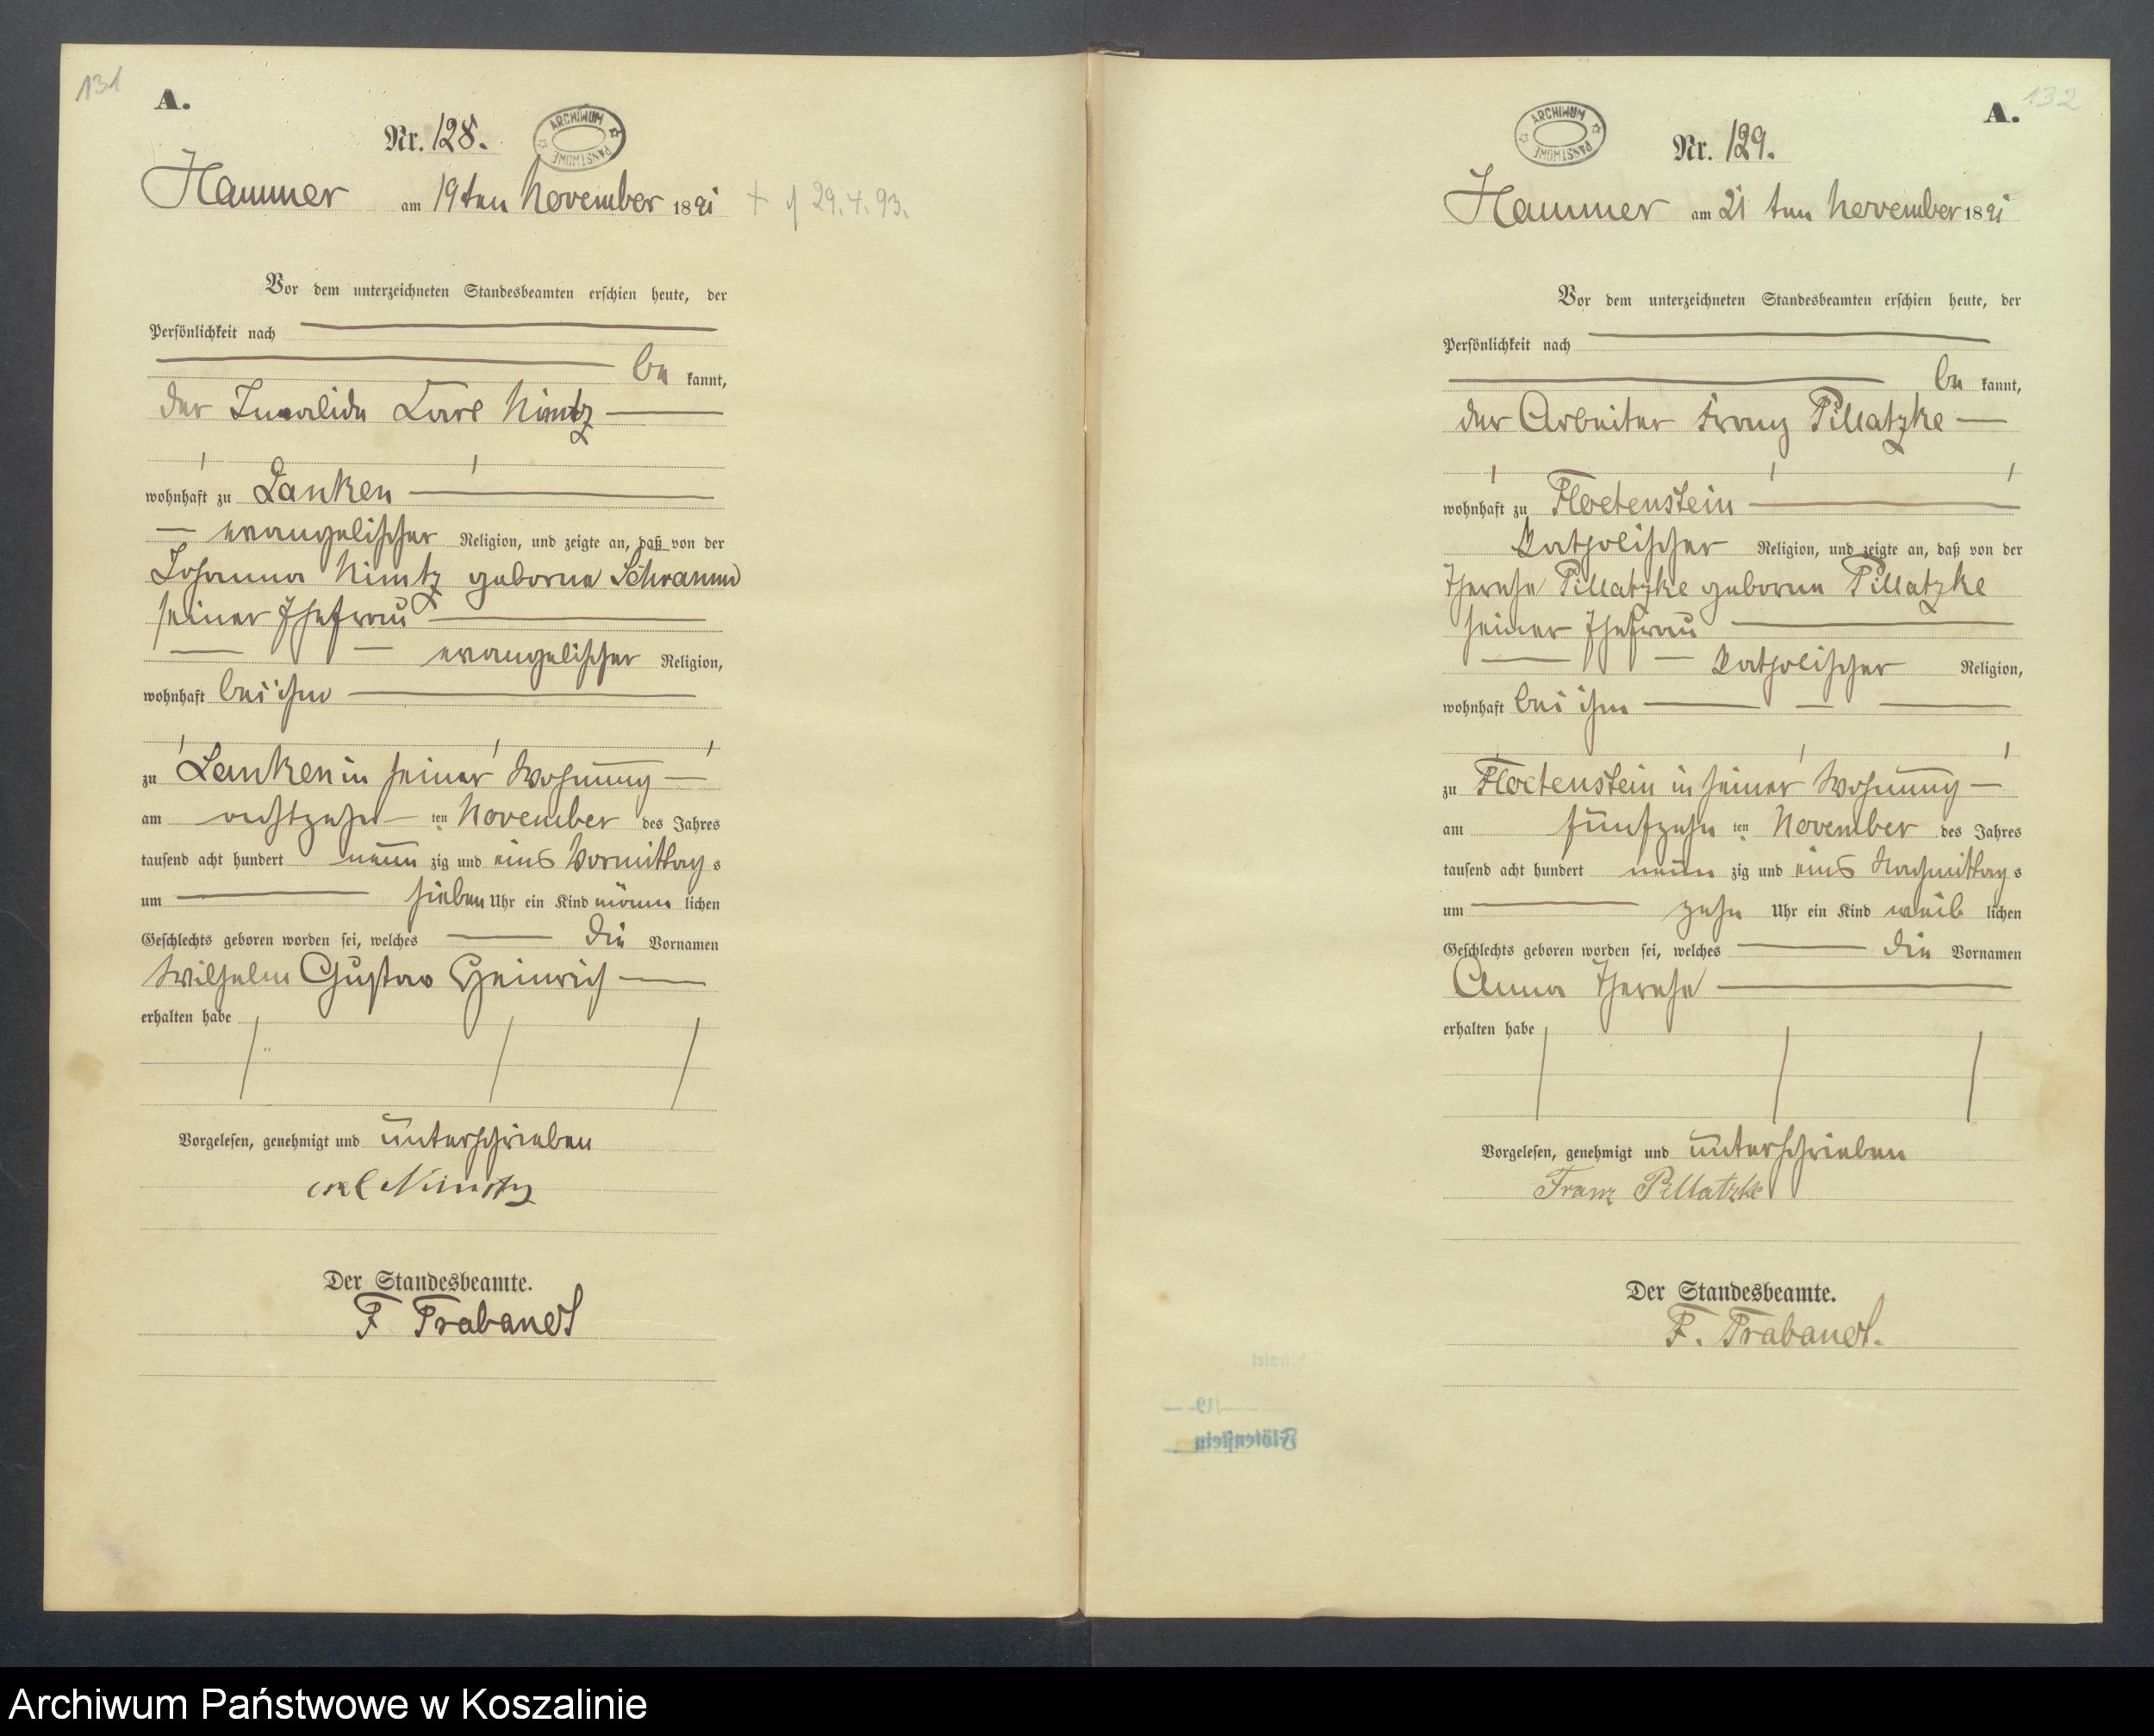 131
A.
Nr. 128.
ARCHIWUM PAŃSTWOWE
Hammer am 19ten November 1891
+ 29.4.93.
Vor dem unterzeichneten Standesbeamten erschien heute, der
Persönlichkeit nach
be kannt,
der Invalide Carl Nimtz
wohnhaft zu Lanken
evangelischer Religion, und zeigte an, daß von der
Johanna Nimtz geborne Schramm
seiner Ehefrau
evangelischer Religion,
wohnhaft bei ihm
zu Lanken in seiner Wohnung
am achtzehn ten November des Jahres
tausend acht hundert neun zig und eins Vormittag s
um sieben Uhr ein Kind männ lichen
Geschlechts geboren worden sei, welches die Vornamen
Wilhelm Gustav Heinrich
erhalten habe
Vorgelesen, genehmigt und unterschrieben
Der Standesbeamte.
F Trabandt
132
A.
ARCHIWUM PAŃSTWOWE
Nr. 129.
Hammer am 21 ten November 1891
Vor dem unterzeichneten Standesbeamten erschien heute, der
Persönlichkeit nach
be kannt,
der Arbeiter Franz Pillatzke
wohnhaft zu Floetenstein
katholischer Religion, und zeigte an, daß von der
Therese Pillatzke geborne Pillatzke
seiner Ehefrau
katholischer Religion,
wohnhaft bei ihm
zu Floetenstein in seiner Wohnung
am fünfzehn ten November des Jahres
tausend acht hundert neun zig und eins Nachmittag s
um zehn Uhr ein Kind weib lichen
Geschlechts geboren worden sei, welches die Vornamen
Anna Therese
erhalten habe
Vorgelesen, genehmigt und unterschrieben
Franz Pillatzke
Der Standesbeamte.
F. Trabandt.
Flötenstein
Archiwum Państwowe w Koszalinie